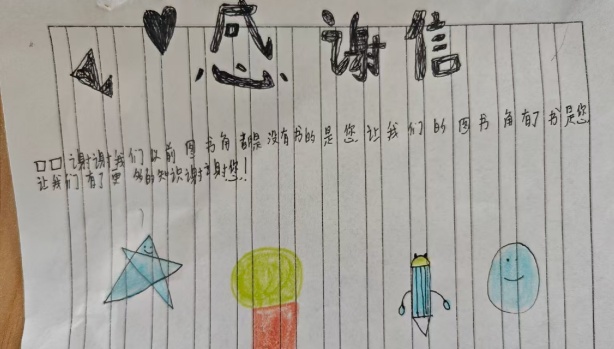 感谢信
□□谢谢我们以前图书角都是没有书的是您让我们的图书角有了书是您
让我们有了更多的知识谢谢您!